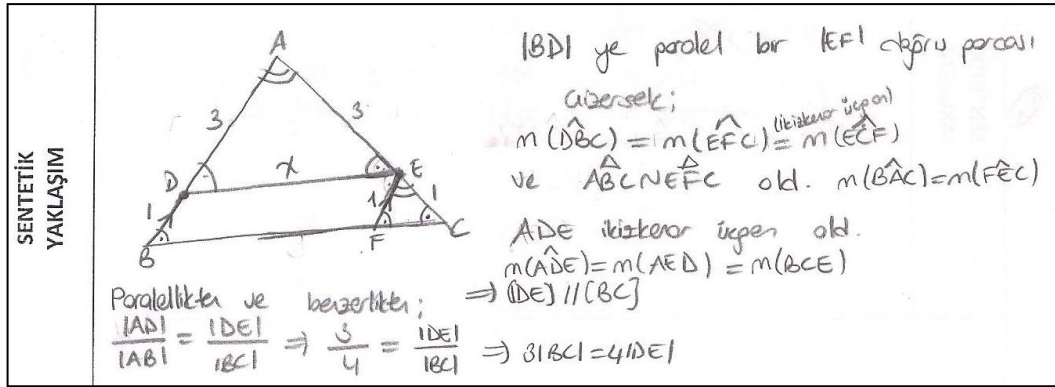 SENTETİK
YAKLAŞIM
A
3
3
D
x
E
1
1
1
B
F
C
|BD| ye paralel bir |EF| doğru parçası
çizersek;
(ikizkenar üçgen)
m(DB̂C) = m(EF̂C) = m(EĈF)
ve AB̂C ~ EF̂C old. m(BÂC)=m(FÊC)
ADE ikizkenar üçgen old.
m(AD̂E)=m(AED)=m(BCE)
⇒ [DE] // [BC]
Paralellikten ve benzerlikten;
|AD|/|AB| = |DE|/|BC| ⇒ 3/4 = |DE|/|BC| ⇒ 3|BC|=4|DE|